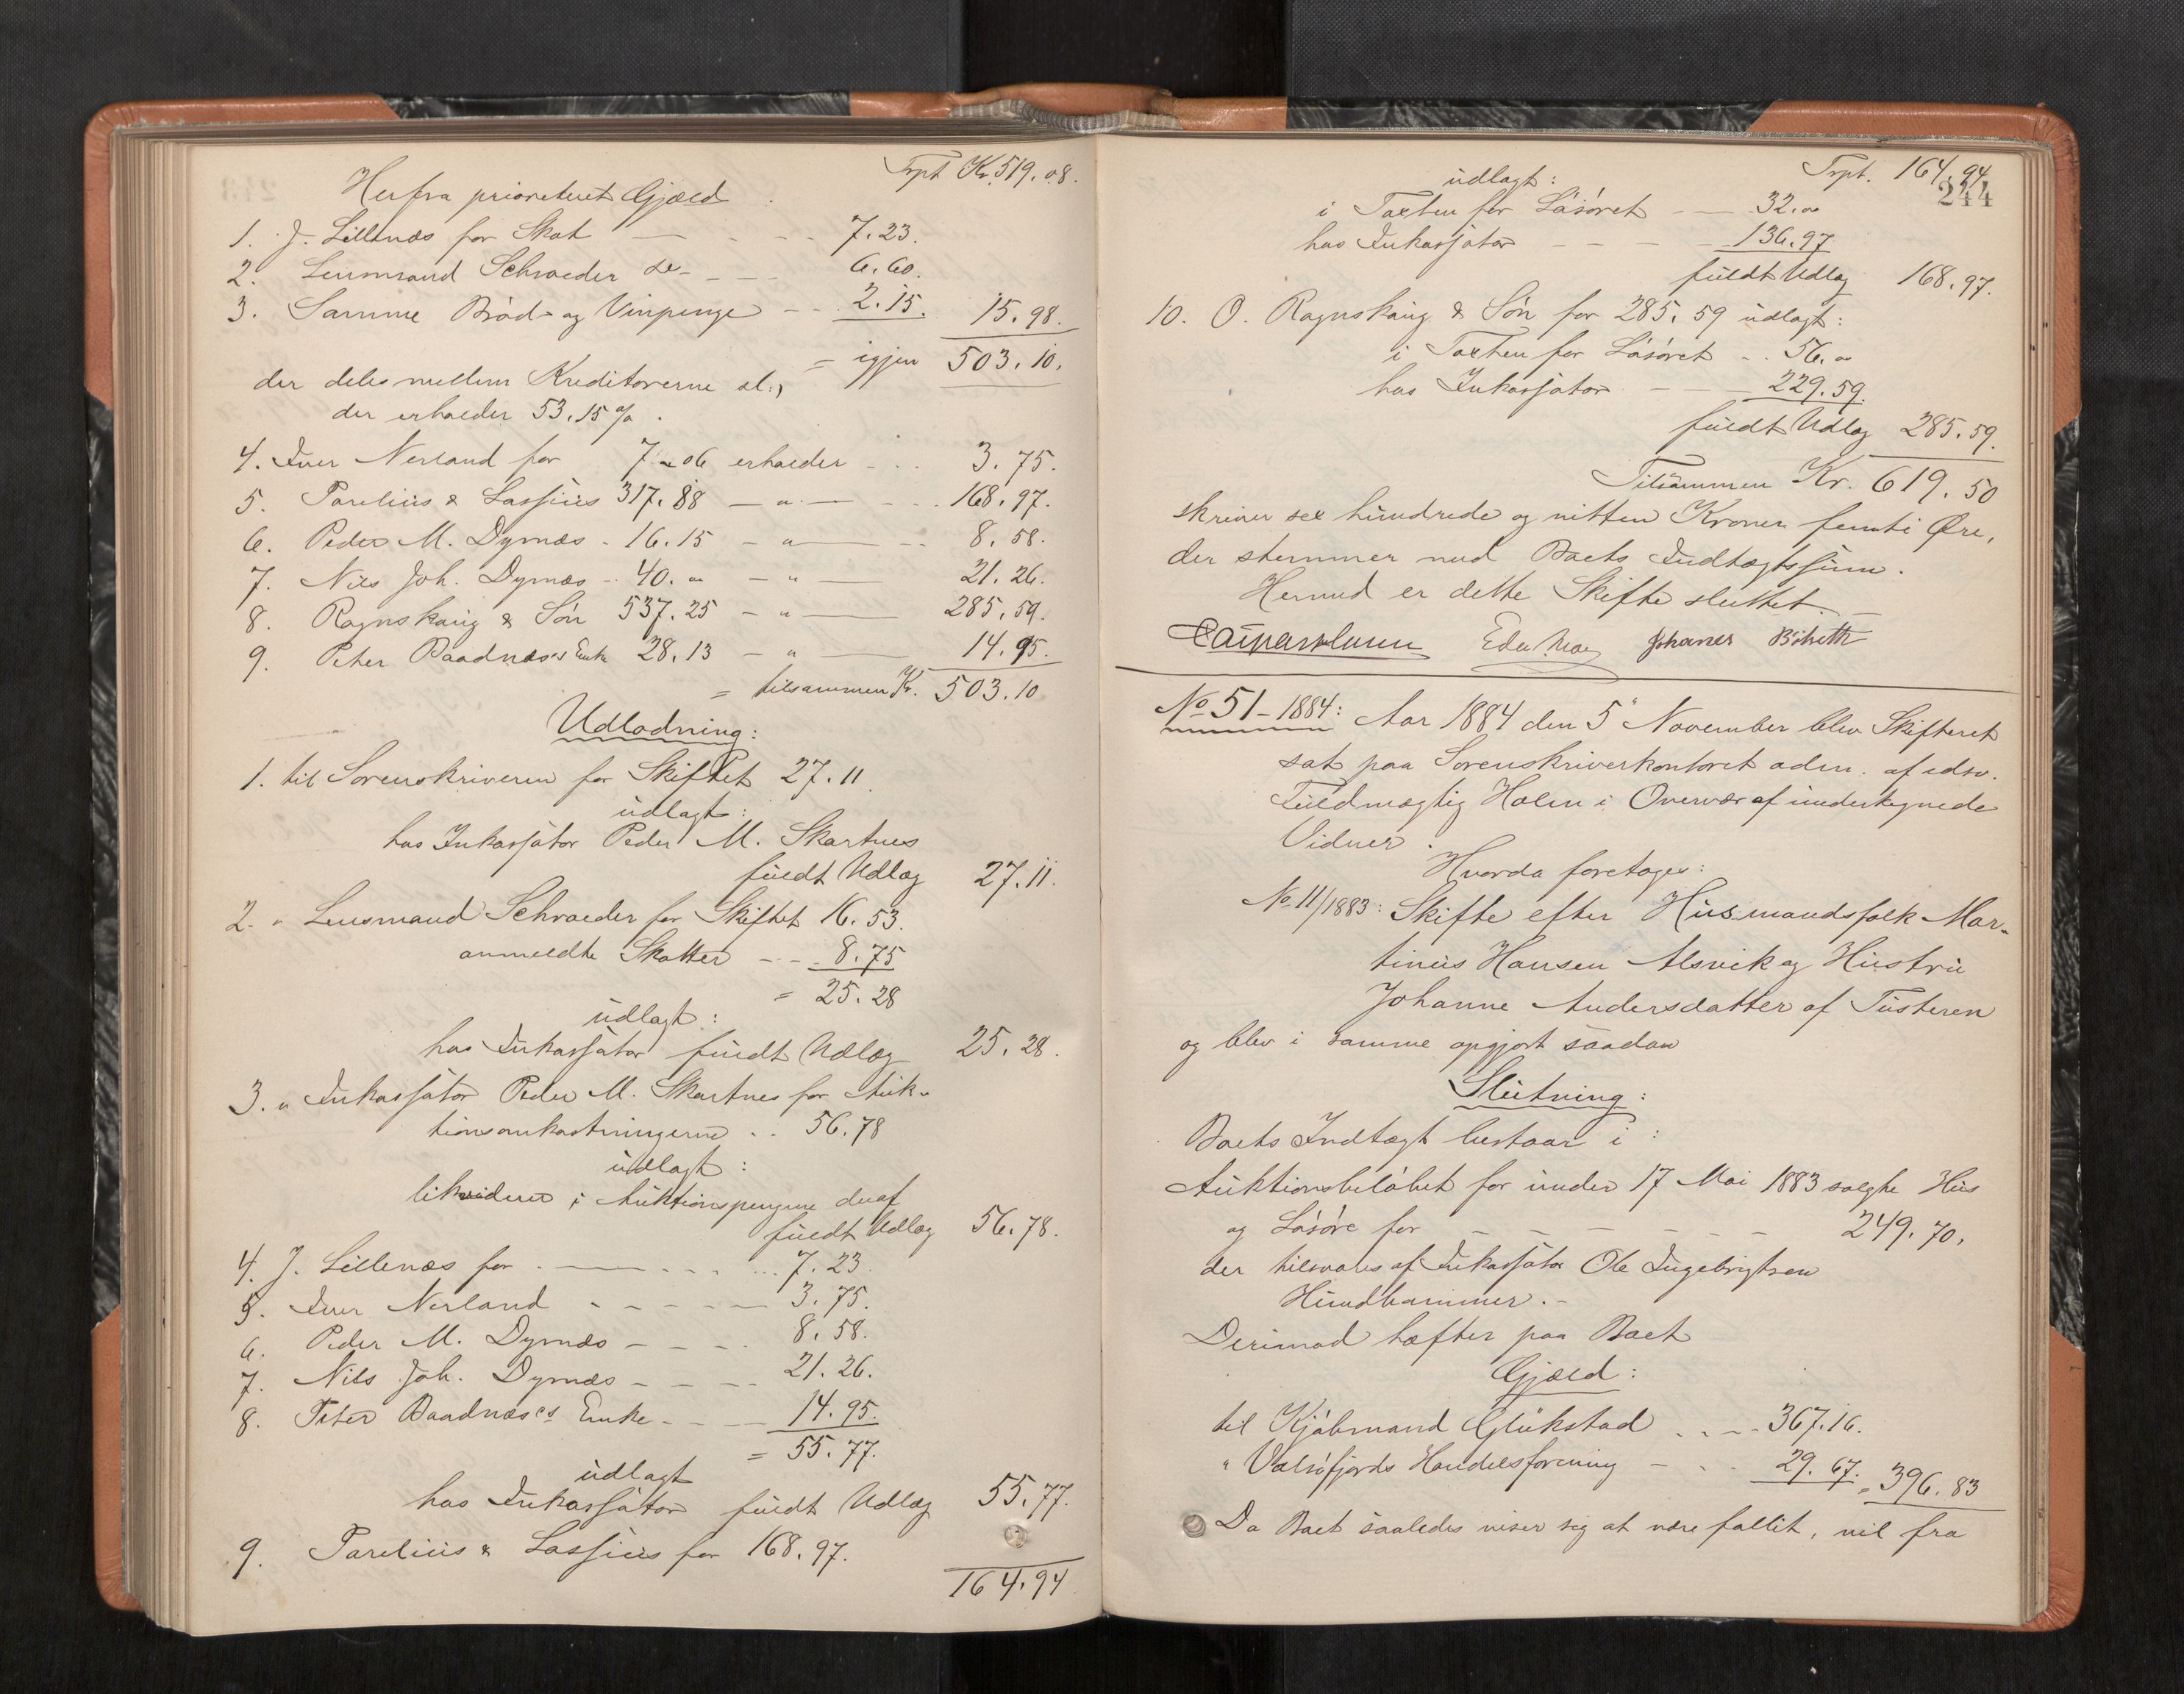 Trpt Kr. 519.08.
Herfra prioriteret Gjæld
1. J. Lillenæs for Skat 7.23.
2. Lensmand Schrøeder do 6.60.
3. Samme Brød- og Vinpenge 2.15. 15.98.
= igjen 503.10.
der deles mellem Kreditorerne al.,
der erholder 53.15 %.
4. Iver Nerland for 7.06 erholder 3.75.
5. Parelius & Lossius 317.88 — " — 168.97.
6. Peder M. Dyrnæs - 16.15 — " — 8.58.
7. Nils Joh. Dyrnæs - 40. " — " — 21.26.
8. Rognskaug & Søn 537.25 — " — 285.59.
9. Peter Baadnæs's Enke 28.13 — " — 14.95.
= tilsammen Kr. 503.10
Udlodning:
1. til Sorenskriveren for Skiftet 27.11.
udlagt:
hos Inkassator Peder M. Skartnes
fuldt Udlæg 27.11.
2. " Lensmand Schroeder for Skiftet 16.53.
anmeldte Skatter - - - 8.75
= 25.28
udlagt:
hos Inkassator fuldt Udlæg 25.28.
3. " Inkassator Peder M. Skartnes for Auk-
tionsomkostningerne .. 56.78
udlagt:
likviderer i Auktionspengene deraf
fuldt Udlæg 56.78.
4. J. Lillenæs for - 7.23.
5. Iver Nerland - 3.75.
6. Peder M. Dyrnæs - 8.58.
7. Nils Joh. Dyrnæs - 21.26.
8. Peter Baadnæs's Enke - 14.95.
= 55.77.
udlagt
hos Inkassator fuldt Udlæg 55.77.
9. Parelius & Lossius for 168.97.
164.94
Trpt. 164.94
244
udlagt:
i Taxten for Løsøret 32. "
hos Inkassator 136.97
fuldt Udlæg 168.97.
10. O. Rognskaug & Søn for 285.59 udlagt:
i Taxten for Løsøret 56. "
hos Inkassator 229.59.
fuldt Udlæg 285.59.
Tilsammen Kr. 619.50
skriver sex hundrede og nitten Kroner femti Øre,
der stemmer med Boets Indtægtssum.
Hermed er dette Skifte sluttet. —
Edv. Moe Johannes
No 51 - 1884: Aar 1884 den 5" November blev Skifteret
sat paa Sorenskriverkontoret adm. af edsv.
Fuldmægtig Holm i Overvær af undertegnede
Vidner.
Hvorda foretoges:
No 11/1883: Skifte efter Husmandsfolk Mar-
tinus Hansen Alsvik og Hustru
Johanne Andersdatter af Tusteren
og blev i samme opgjort saadan
Slutning:
Boets Indtægt bestaar i:
Auktionsbeløbet for under 17 Mai 1883 solgte Hus
og Løsøre for - 249.70,
der tilsvares af Inkassator Ole Ingebrigtsen
Hundhammer. -
Derimod hæfter paa Boet
Gjæld:
til Kjøbmand Glükstad 367.16.
" Valsøfjords Handelsforening - 29.67. = 396.83
Da Boet saaledes viser sig at være fallit, vil fra